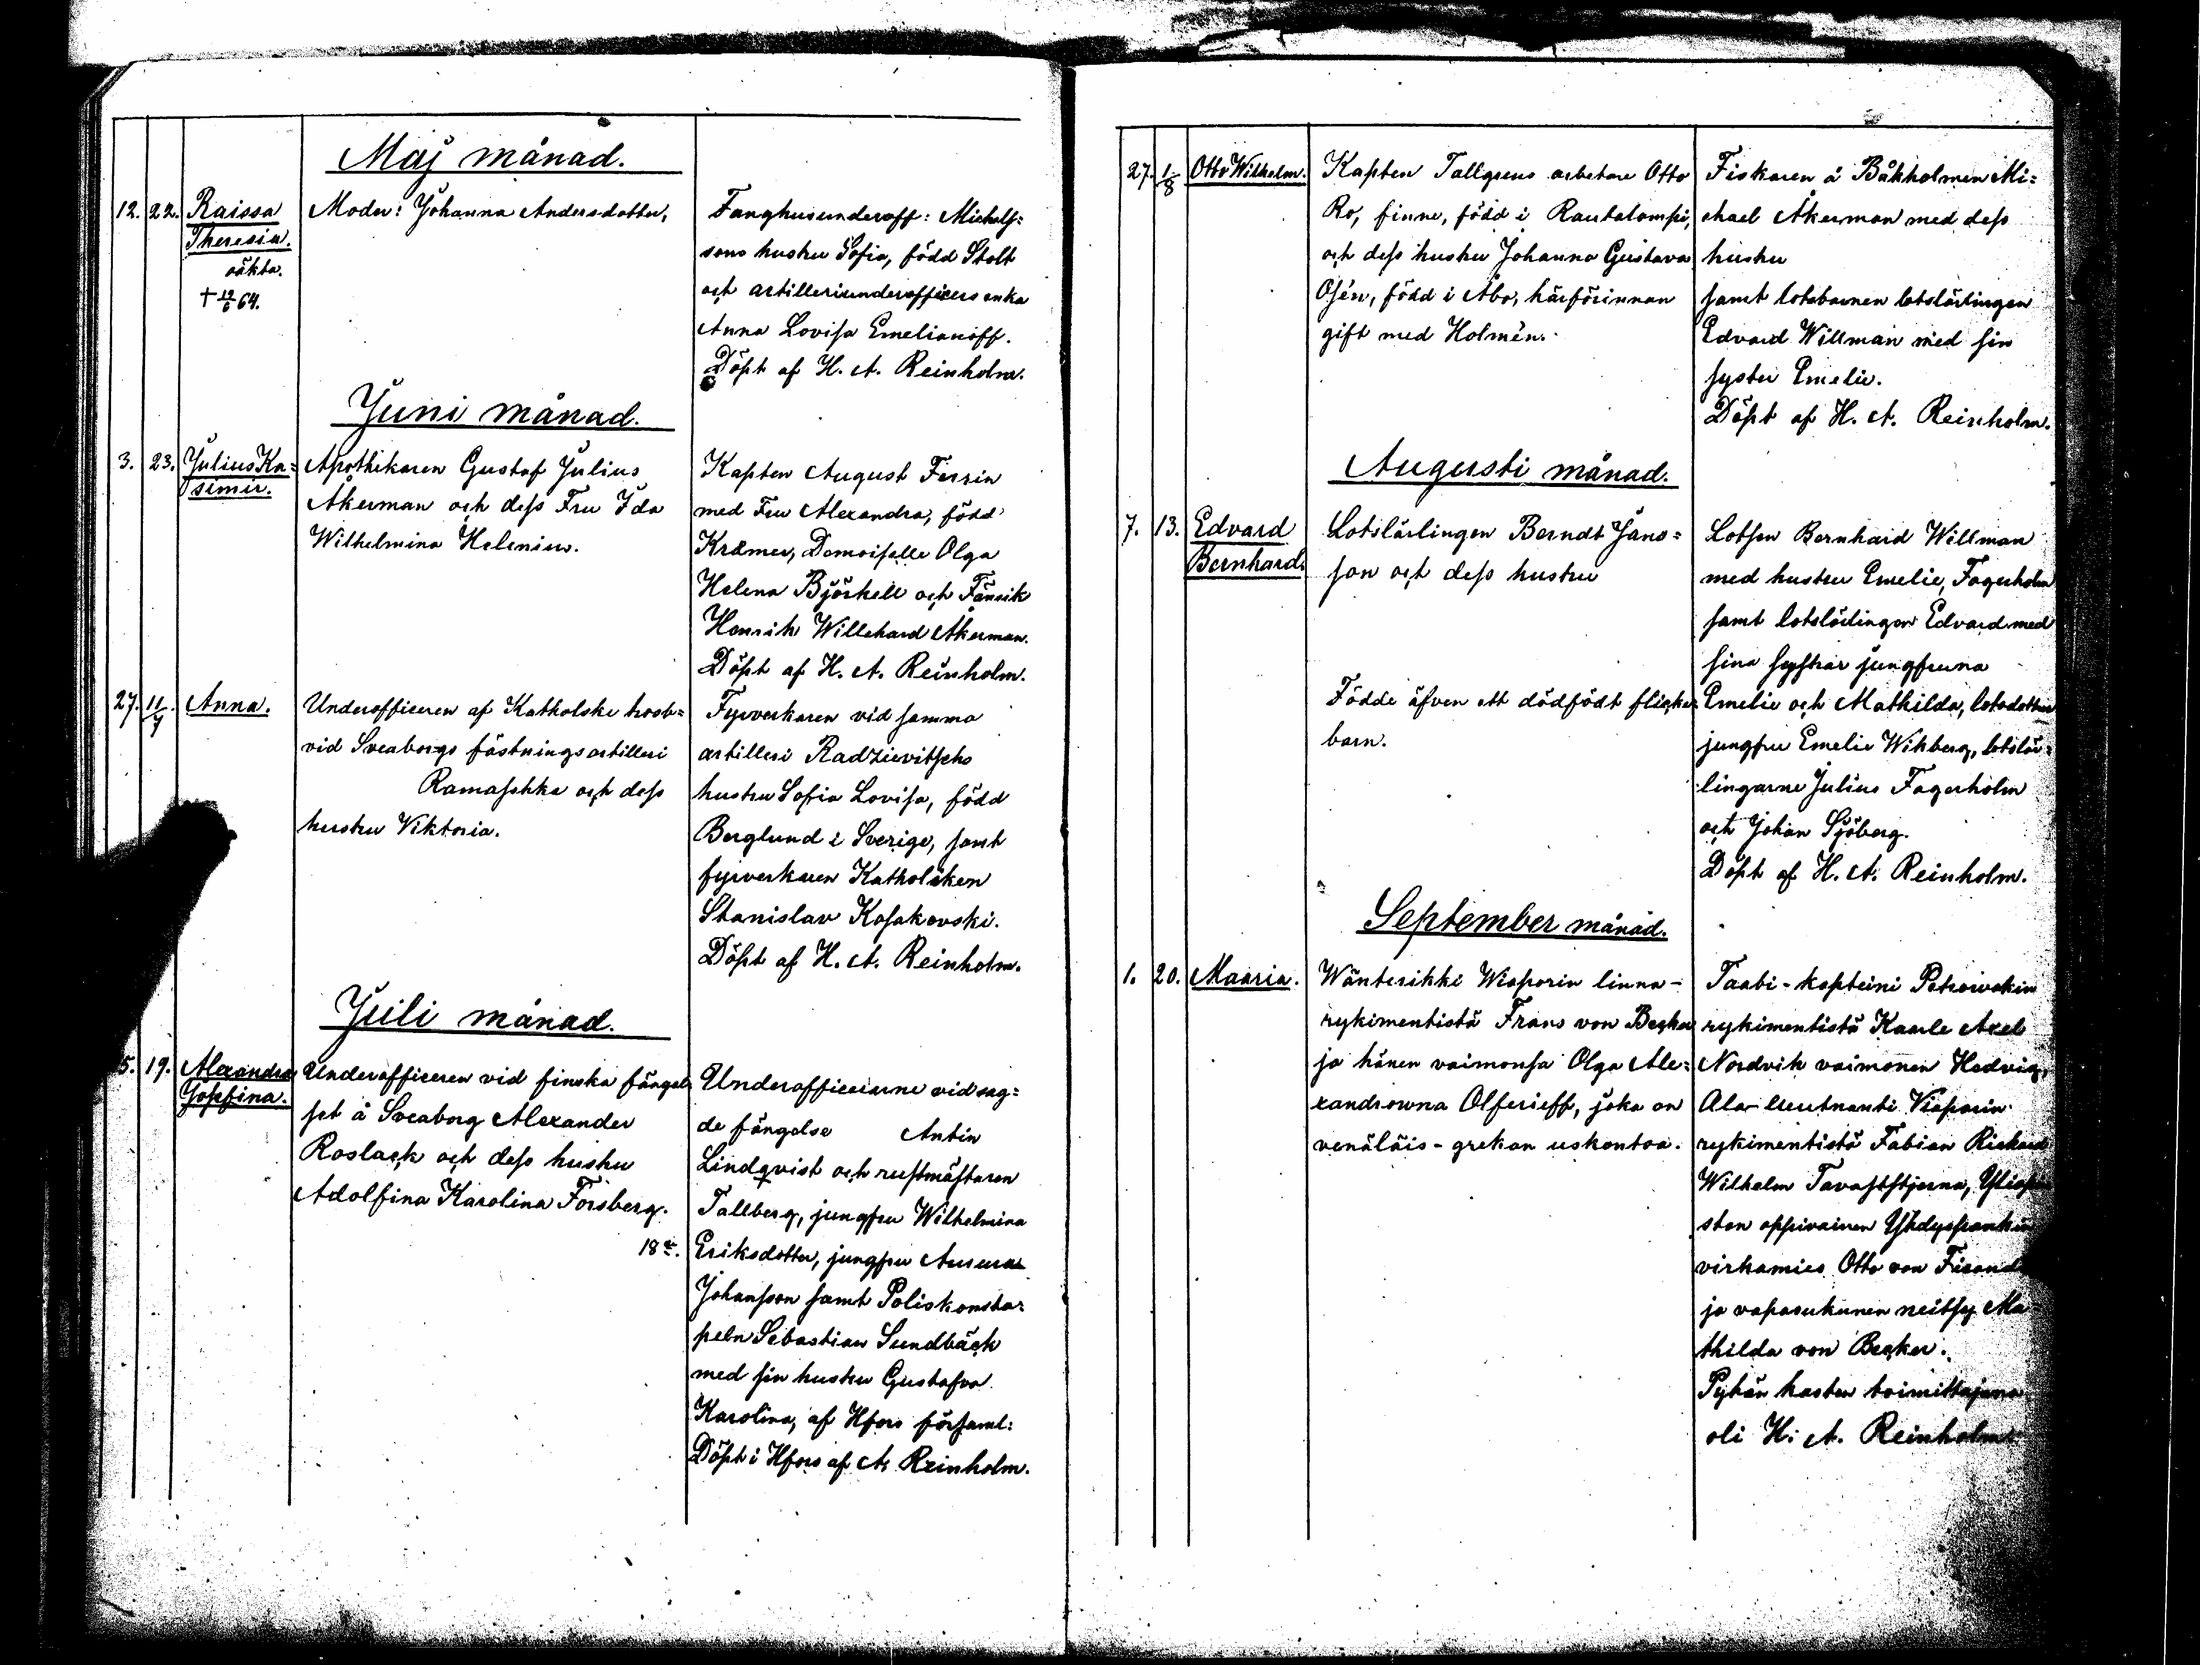 Maj månad.
12. 22. Raissa Theresia. oäkta. † 12/6 64.
Moder: Johanna Andersdotter,
Fånghusunderoff: Michels=
sons hustru Sofia, född Stolt
och artilleriunderofficers enka
Anna Lovisa Emelianoff.
Döpt af H. A. Reinholm.
Juni månad.
3. 23. Julius Ka=
simir.
Apothekaren Gustaf Julius
Åkerman och dess Fru Ida
Wilhelmina Helenius.
Kapten August Ferrin
med Fru Alexandra, född
Krämer, Demoiselle Olga
Helena Björkell och Fänrik
Henrik Willehard Åkerman.
Döpt af H. A. Reinholm.
27. 11/7 Anna.
Underofficeren af Katholske
vid Sveaborgs fästningsartilleri
Ramaschka och dess
hustru Viktoria.
Fyrverkaren vid samma
artilleri Radzievitschs
hustru Sofia Lovisa, född
Berglund i Sverige, samt
fyrverkaren Katholiken
Stanislav Kosakovski.
Döpt af H. A. Reinholm.
Juli månad.
5. 19. Alexandra
Josefina.
Underofficeren vid finska fängel
set å Sveaborg Alexander
Roslack och dess hustru
Adolfina Karolina Forsberg.
Underofficerarne vid sag=
de fängelse Antin
Lindqvist och rustmästaren
Tallberg, jungfru Wilhelmina
Eriksdotter, jungfru Aurura
Johansson samt Poliskonsta=
peln Sebastian Sundbäck
med sin hustru Gustafva
Karolina, af Hfors församl:
Döpt i Hfors af A. Reinholm.
27. 1/8 Otto Wilhelm.
Kapten Tallgrens arbetare Otto
Ro, finne, född i Rautalampi,
och dess hustru Johanna Gustava
Osén, född i Åbo, härförinnan
gift med Holmén.
Fiskaren å Båkholmen Mi=
chael Åkerman med dess
hustru
samt lotsbarnen lotslärlingen
Edvard Willman med sin
syster Emelie.
Döpt af H. A. Reinholm.
Augusti månad.
7. 13. Edvard
Bernhard.
Lotslärlingen Berndt Jans=
son och dess hustru
Födde äfven ett dödfödt flicke
barn.
Lotsen Bernhard Willman
med hustru Emelie, Fagerholm
samt lotslärlingen Edvard med
sina systrar jungfruna
Emelie och Mathilda, lotsdotter
jungfru Emelie Wikberg, lotslär=
lingarne Julius Fagerholm
och Johan Sjöberg.
Döpt af H. A. Reinholm.
September månad.
1. 20. Maaria.
Wänterikki Wiaporin linna-
rykimentistä Frans von Becker
ja hänen vaimonsa Olga Ale=
xandrowna Olferieff, joka on
venäläis-grekan uskontoa.
Taabi-kapteini Petroivskin
rykimentistä Kaarle Axel
Nordvik vaimonen Hedvig,
Ala-lieutnanti Viaporin
rykimentistä Fabian Richard
Wilhelm Tavaststjerna,
ston oppivainen
virkamies Otto von
ja vapasukunen neitsy Ma=
thilda von Becker.
Pyhän kasten toimittajana
oli H. A. Reinholm.